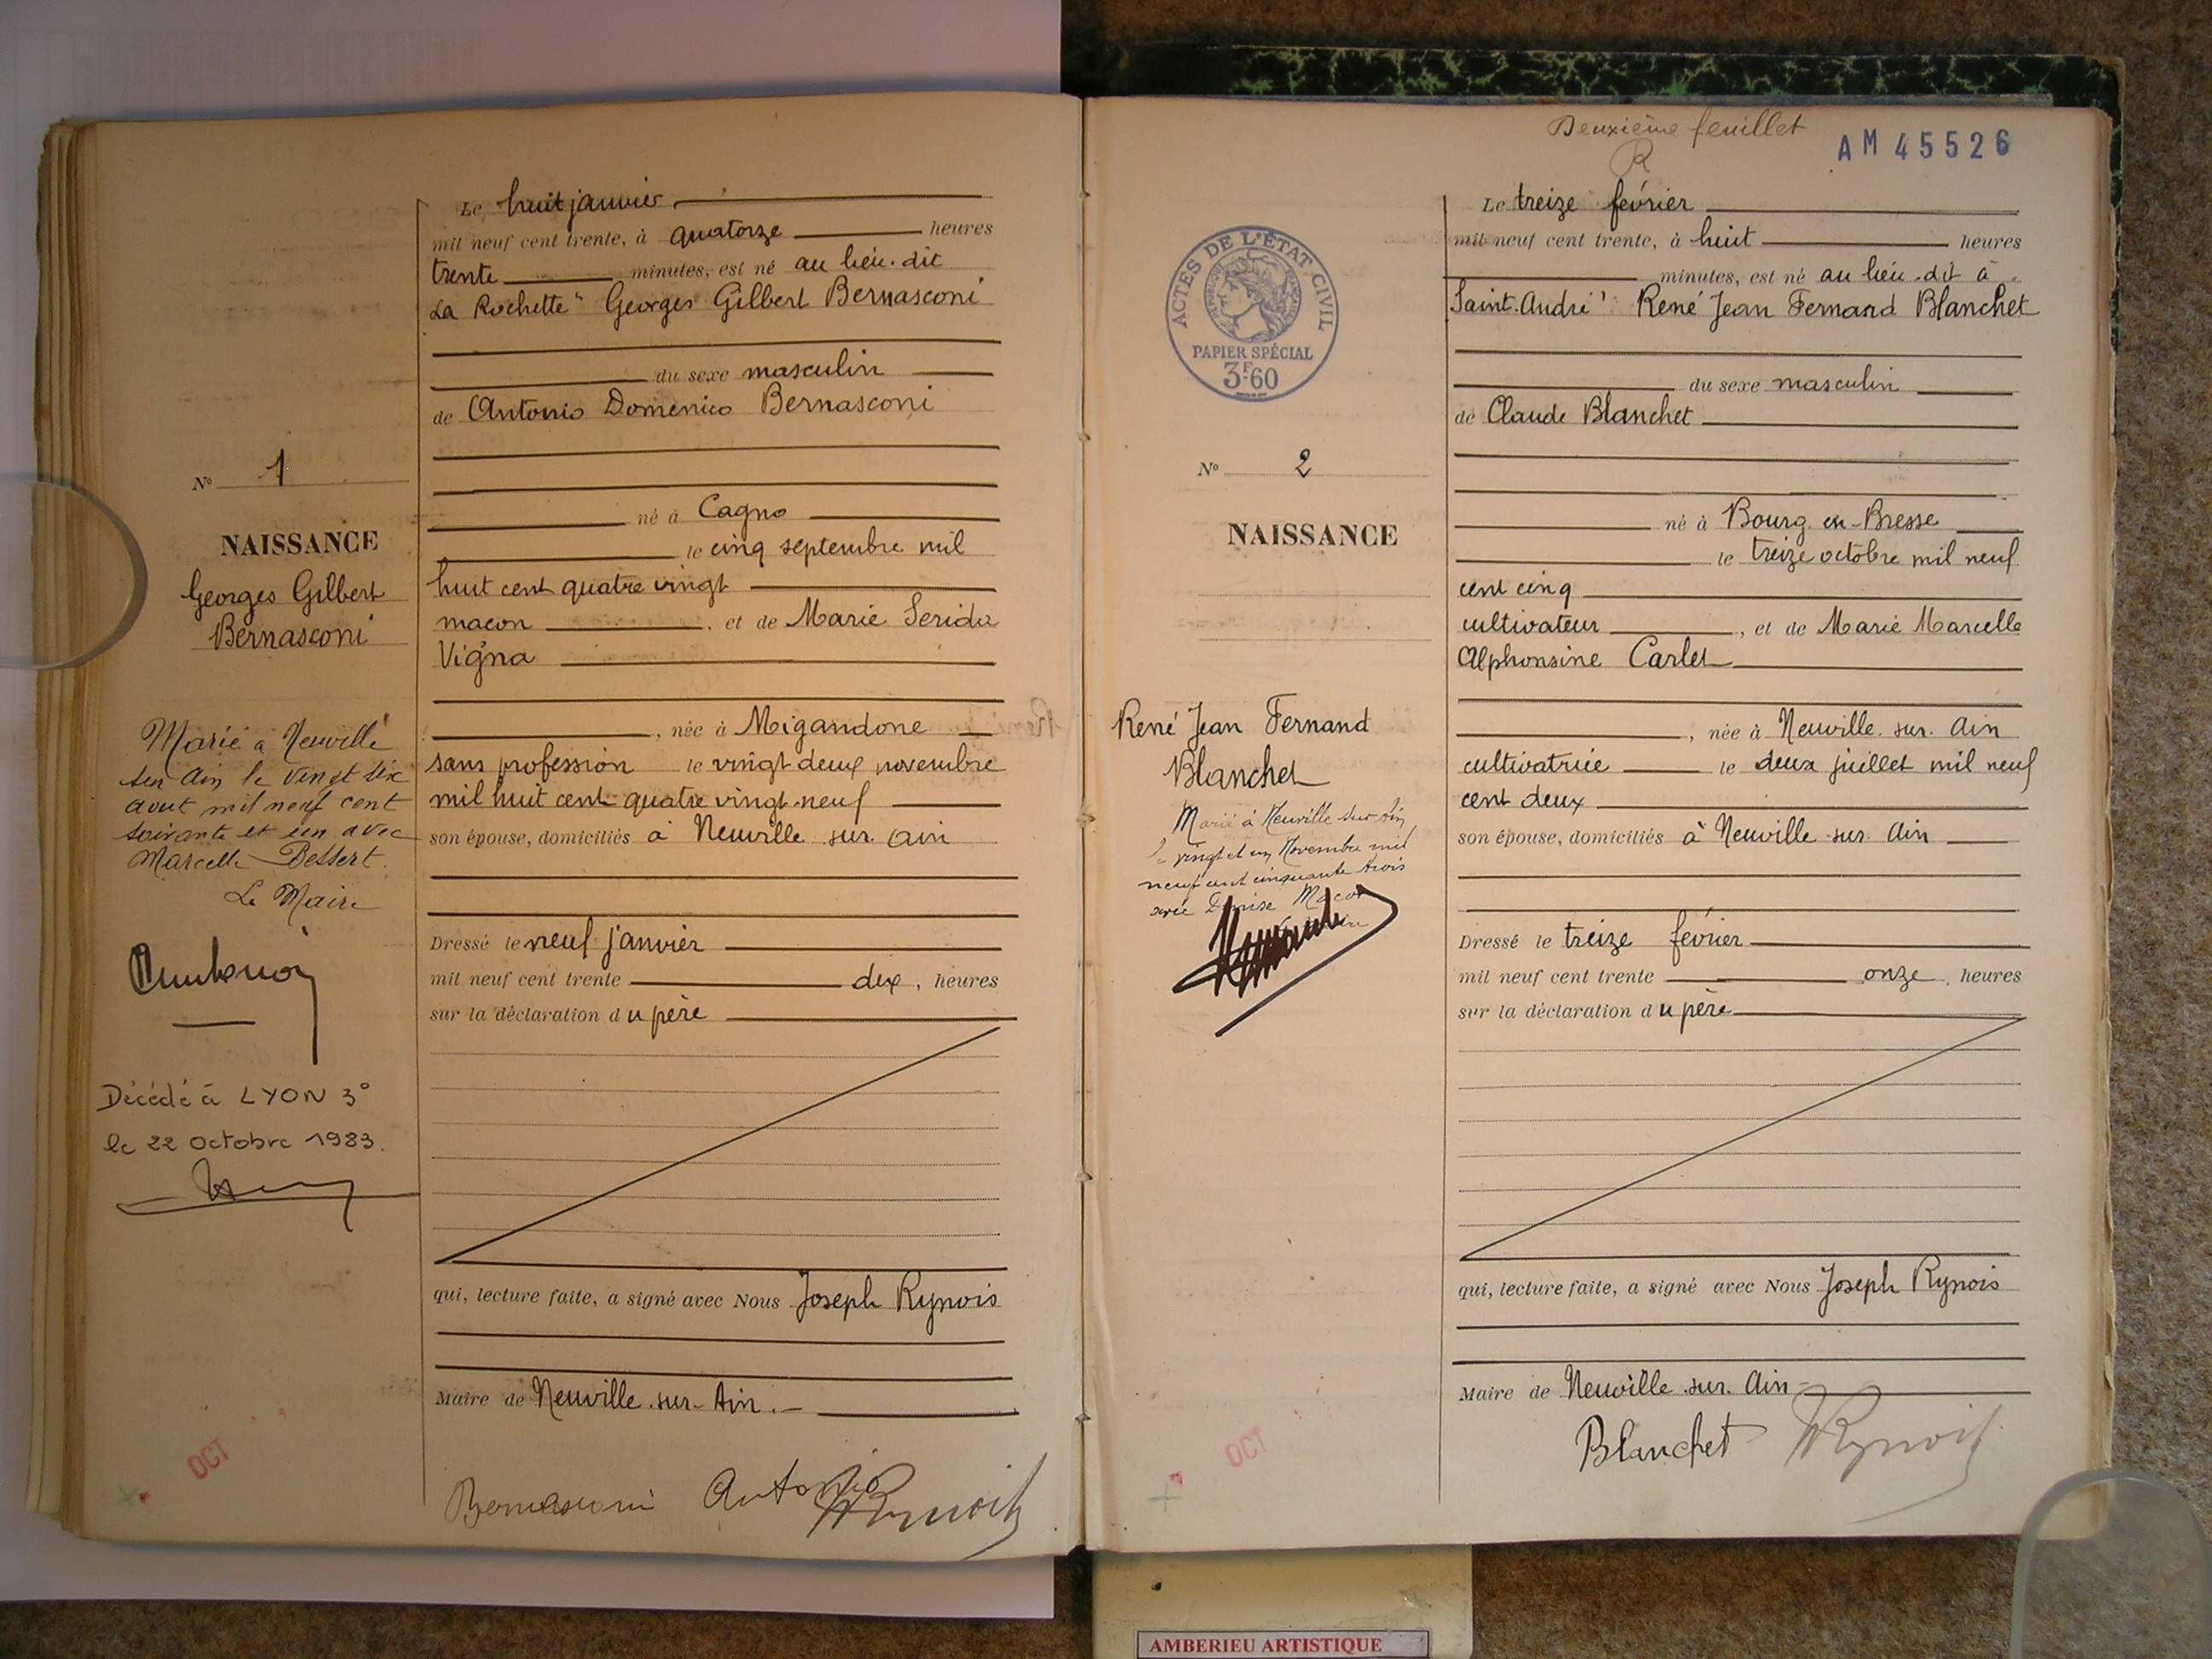 Le huit janvier
mil neuf cent trente, à quatorze heures
trente minutes, est né au lieu-dit
La Rochette" Georges Gilbert Bernasconi
du sexe masculin
de Antonio Domenico Bernasconi
né à Cagno
le cinq septembre mil
huit cent quatre vingt
macon, et de Marie Serida
Vigna
, née à Migandone
sans profession le vingt deux novembre
mil huit cent quatre vingt-neuf
son épouse, domiciliés à Neuville sur Ain
Dressé le neuf janvier
mil neuf cent trente dix, heures
sur la déclaration du père
qui, lecture faite, a signé avec Nous Joseph Rynois
Maire de Neuville-sur-Ain.
Bernasconi Antonio
N° 1
NAISSANCE
Georges Gilbert
Bernasconi
Marié à Neuville
sur Ain le vingt six
aout mil neuf cent
soixante et un avec
Marcelle Bessert.
Le Maire
Décédé à LYON 3°
le 22 Octobre 1983.
OCT
Deuxième feuillet
AM 45526
Le treize février
mil neuf cent trente, à huit heures
minutes, est né au lieu-dit à
Saint-André" René Jean Fernand Blanchet
du sexe masculin
de Claude Blanchet
né à Bourg-en-Bresse
le treize octobre mil neuf
cent cinq
cultivateur, et de Marie Marcelle
Alphonsine Carlet
, née à Neuville-sur-Ain
cultivatrice le deux juillet mil neuf
cent deux
son épouse, domiciliés à Neuville-sur-Ain
Dressé le treize février
mil neuf cent trente onze, heures
sur la déclaration du père
qui, lecture faite, a signé avec Nous Joseph Rynois
Maire de Neuville-sur-Ain
Blanchet Rynois
ACTES DE L'ÉTAT CIVIL
PAPIER SPÉCIAL
3F60
N° 2
NAISSANCE
René Jean Fernand
Blanchet
Marié à Neuville sur Ain
le vingt et un Novembre mil
neuf cent cinquante trois
avec Denise
OCT
AMBERIEU ARTISTIQUE